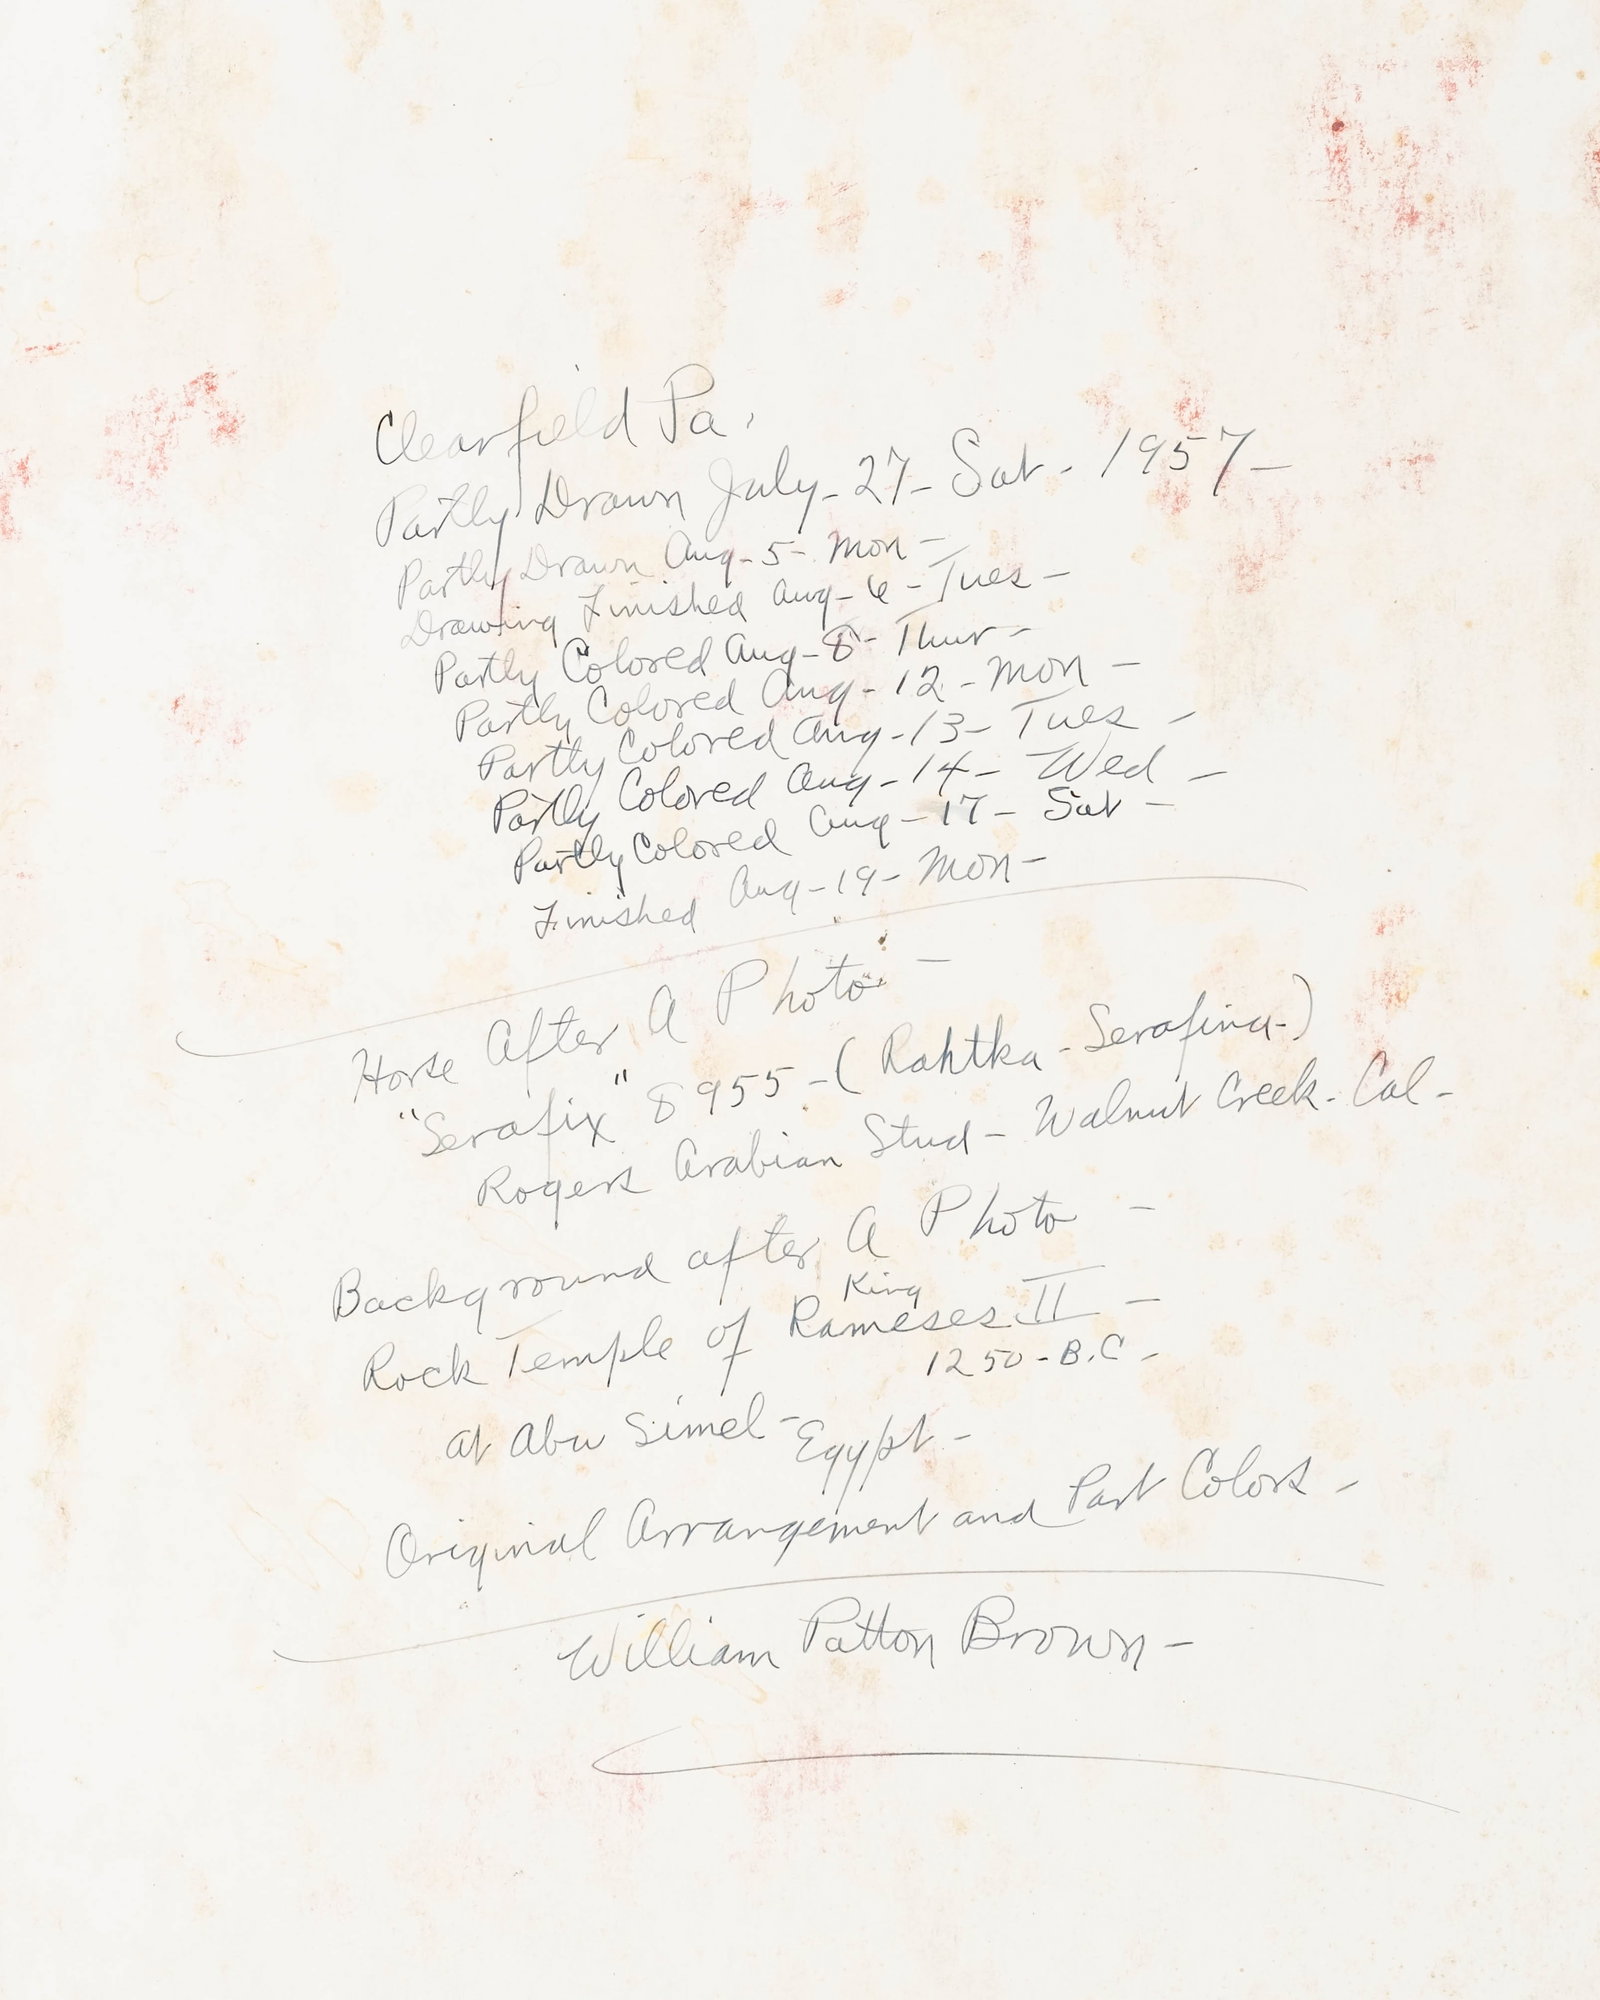 Clearfield Pa.
Partly Drawn July - 27 - Sat - 1957 -
Partly Drawn Aug - 5 - Mon -
Drawing Finished Aug - 6 - Tues -
Partly Colored Aug - 8 - Thur -
Partly Colored Aug - 12 - Mon -
Partly Colored Aug - 13 - Tues -
Partly Colored Aug - 14 - Wed -
Partly Colored Aug - 17 - Sat -
Finished Aug - 19 - Mon -
Horse After A Photo -
"Serafix" 8955 - (Rahtka - Serafina - )
Rogers Arabian Stud - Walnut Creek - Cal -
Background after A Photo -
King
Rock Temple of Rameses II -
1250 - B.C -
at Abu Simel - Egypt -
Original Arrangement and Part Colors -
William Patton Brown -